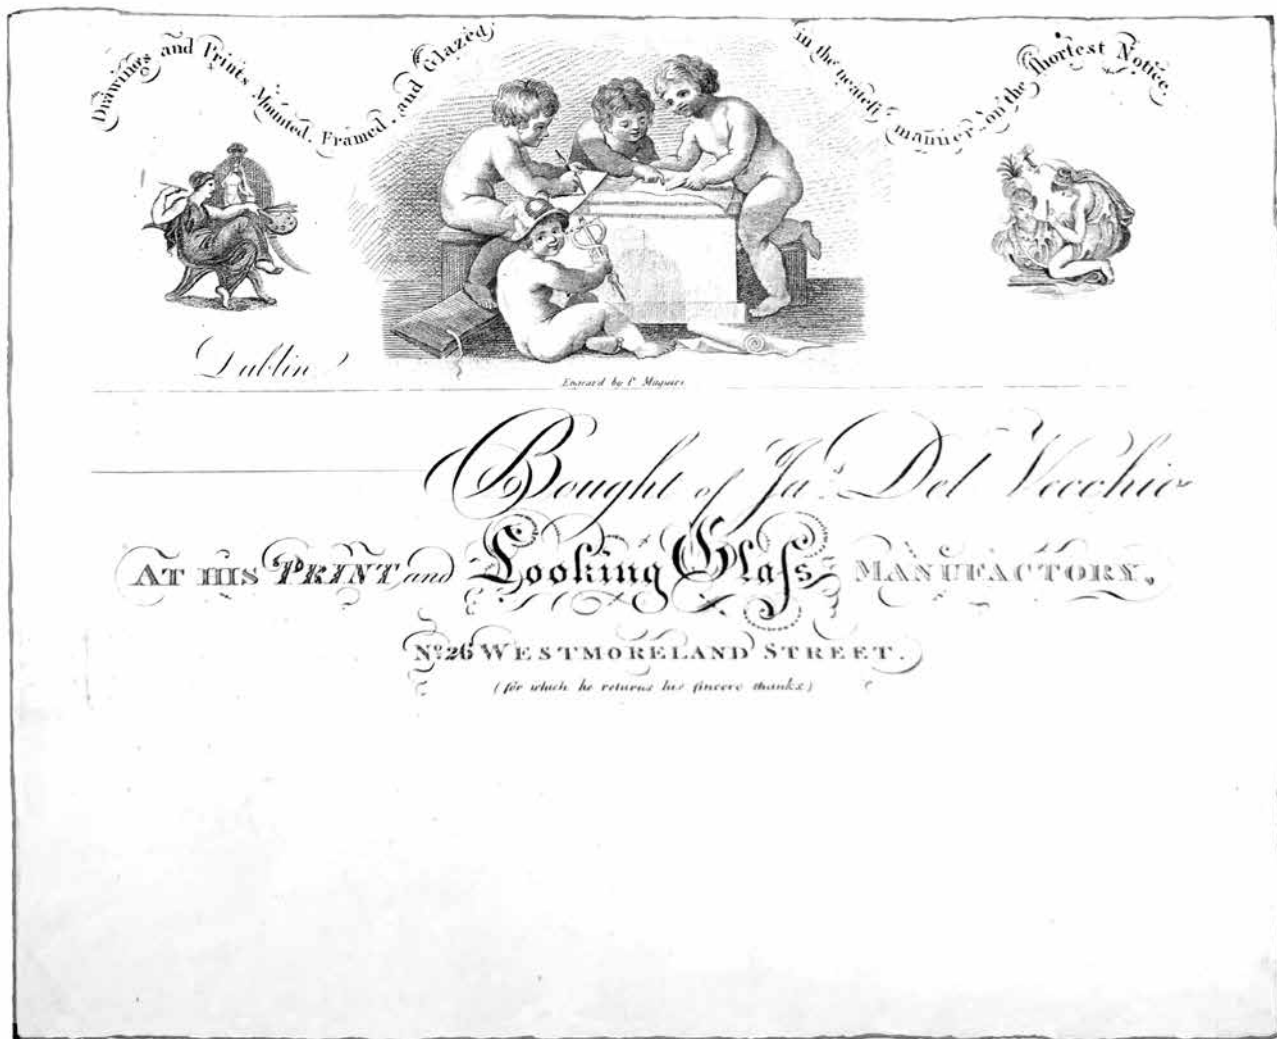 Drawings and Prints Mounted, Framed, and Glazed,
in the neatest manner, on the Shortest Notice.
Dublin
Engrav'd by P. Maguire
Bought of Jas. Del Vecchio
AT HIS PRINT and Looking Glaſs MANUFACTORY,
No. 26 WESTMORELAND STREET.
(for which he returns his ſincere thanks)